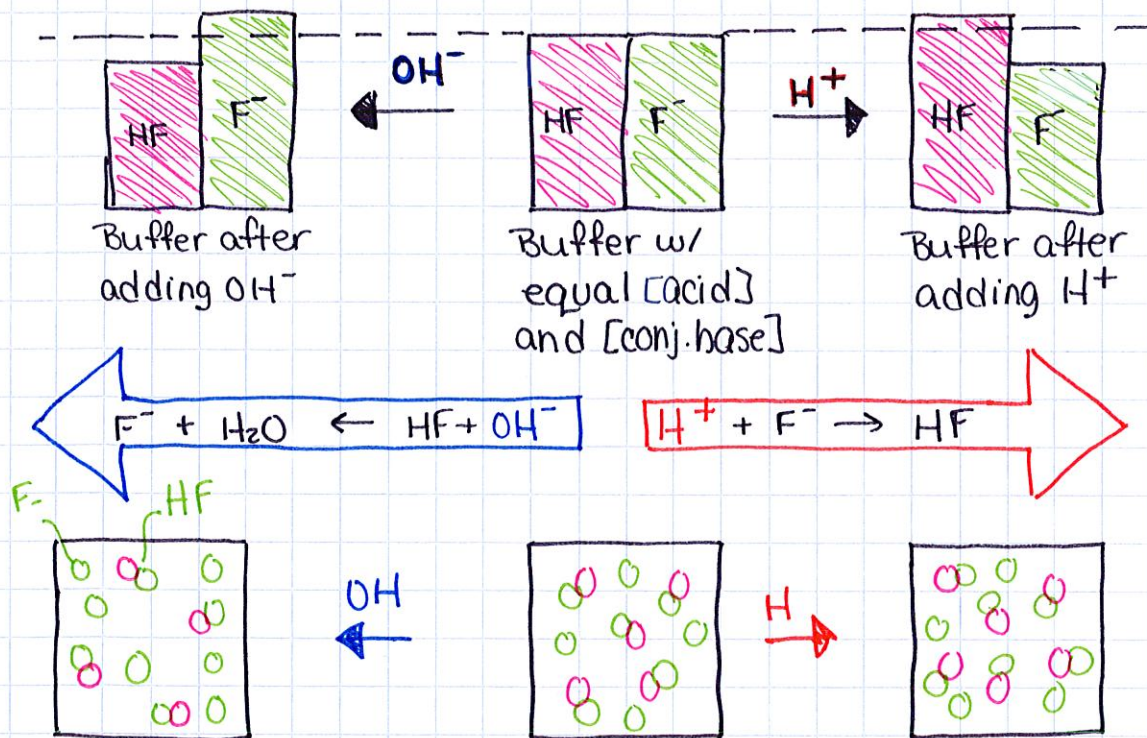 HF
F⁻
OH⁻
HF
F⁻
H⁺
HF
F⁻
Buffer after
adding OH⁻
Buffer w/
equal [acid]
and [conj.base]
Buffer after
adding H⁺
F⁻ + H₂O ← HF + OH⁻
H⁺ + F⁻ → HF
F-
HF
OH
H